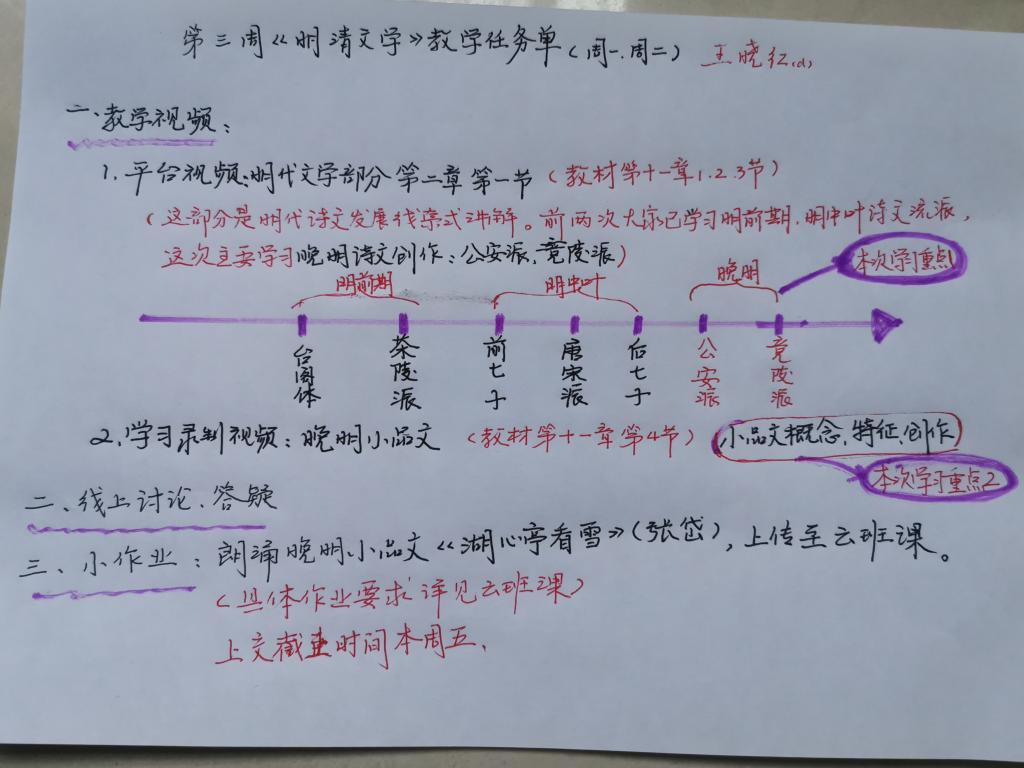 第三周《明清文学》教学任务单(周一.周二) 王晓红(d)
一、教学视频：
1. 平台视频：明代文学部分第二章第一节 (教材第十一章1.2.3节)
(这部分是明代诗文发展线索式讲解。前两次大家已学习明前期.明中叶诗文流派，
这次主要学习晚明诗文创作：公安派.竟陵派)
本次学习重点1
明前期 明中叶 晚明
台阁体 茶陵派 前七子 唐宋派 后七子 公安派 竟陵派
2. 学习录制视频：晚明小品文 (教材第十一章第4节) 小品文概念.特征.创作
本次学习重点2
二、线上讨论.答疑
三、小作业：朗诵晚明小品文《湖心亭看雪》(张岱)，上传至云班课。
(具体作业要求详见云班课)
上交截止时间本周五.